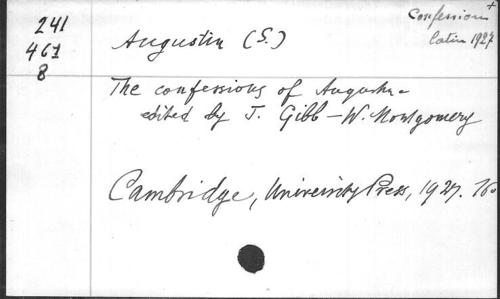 241
461
8
Confessions +
latin 1927
Augustin (S.)
The confessions of Augustin
edited by J. Gibb - W. Montgomery
Cambridge, University Press, 1927.